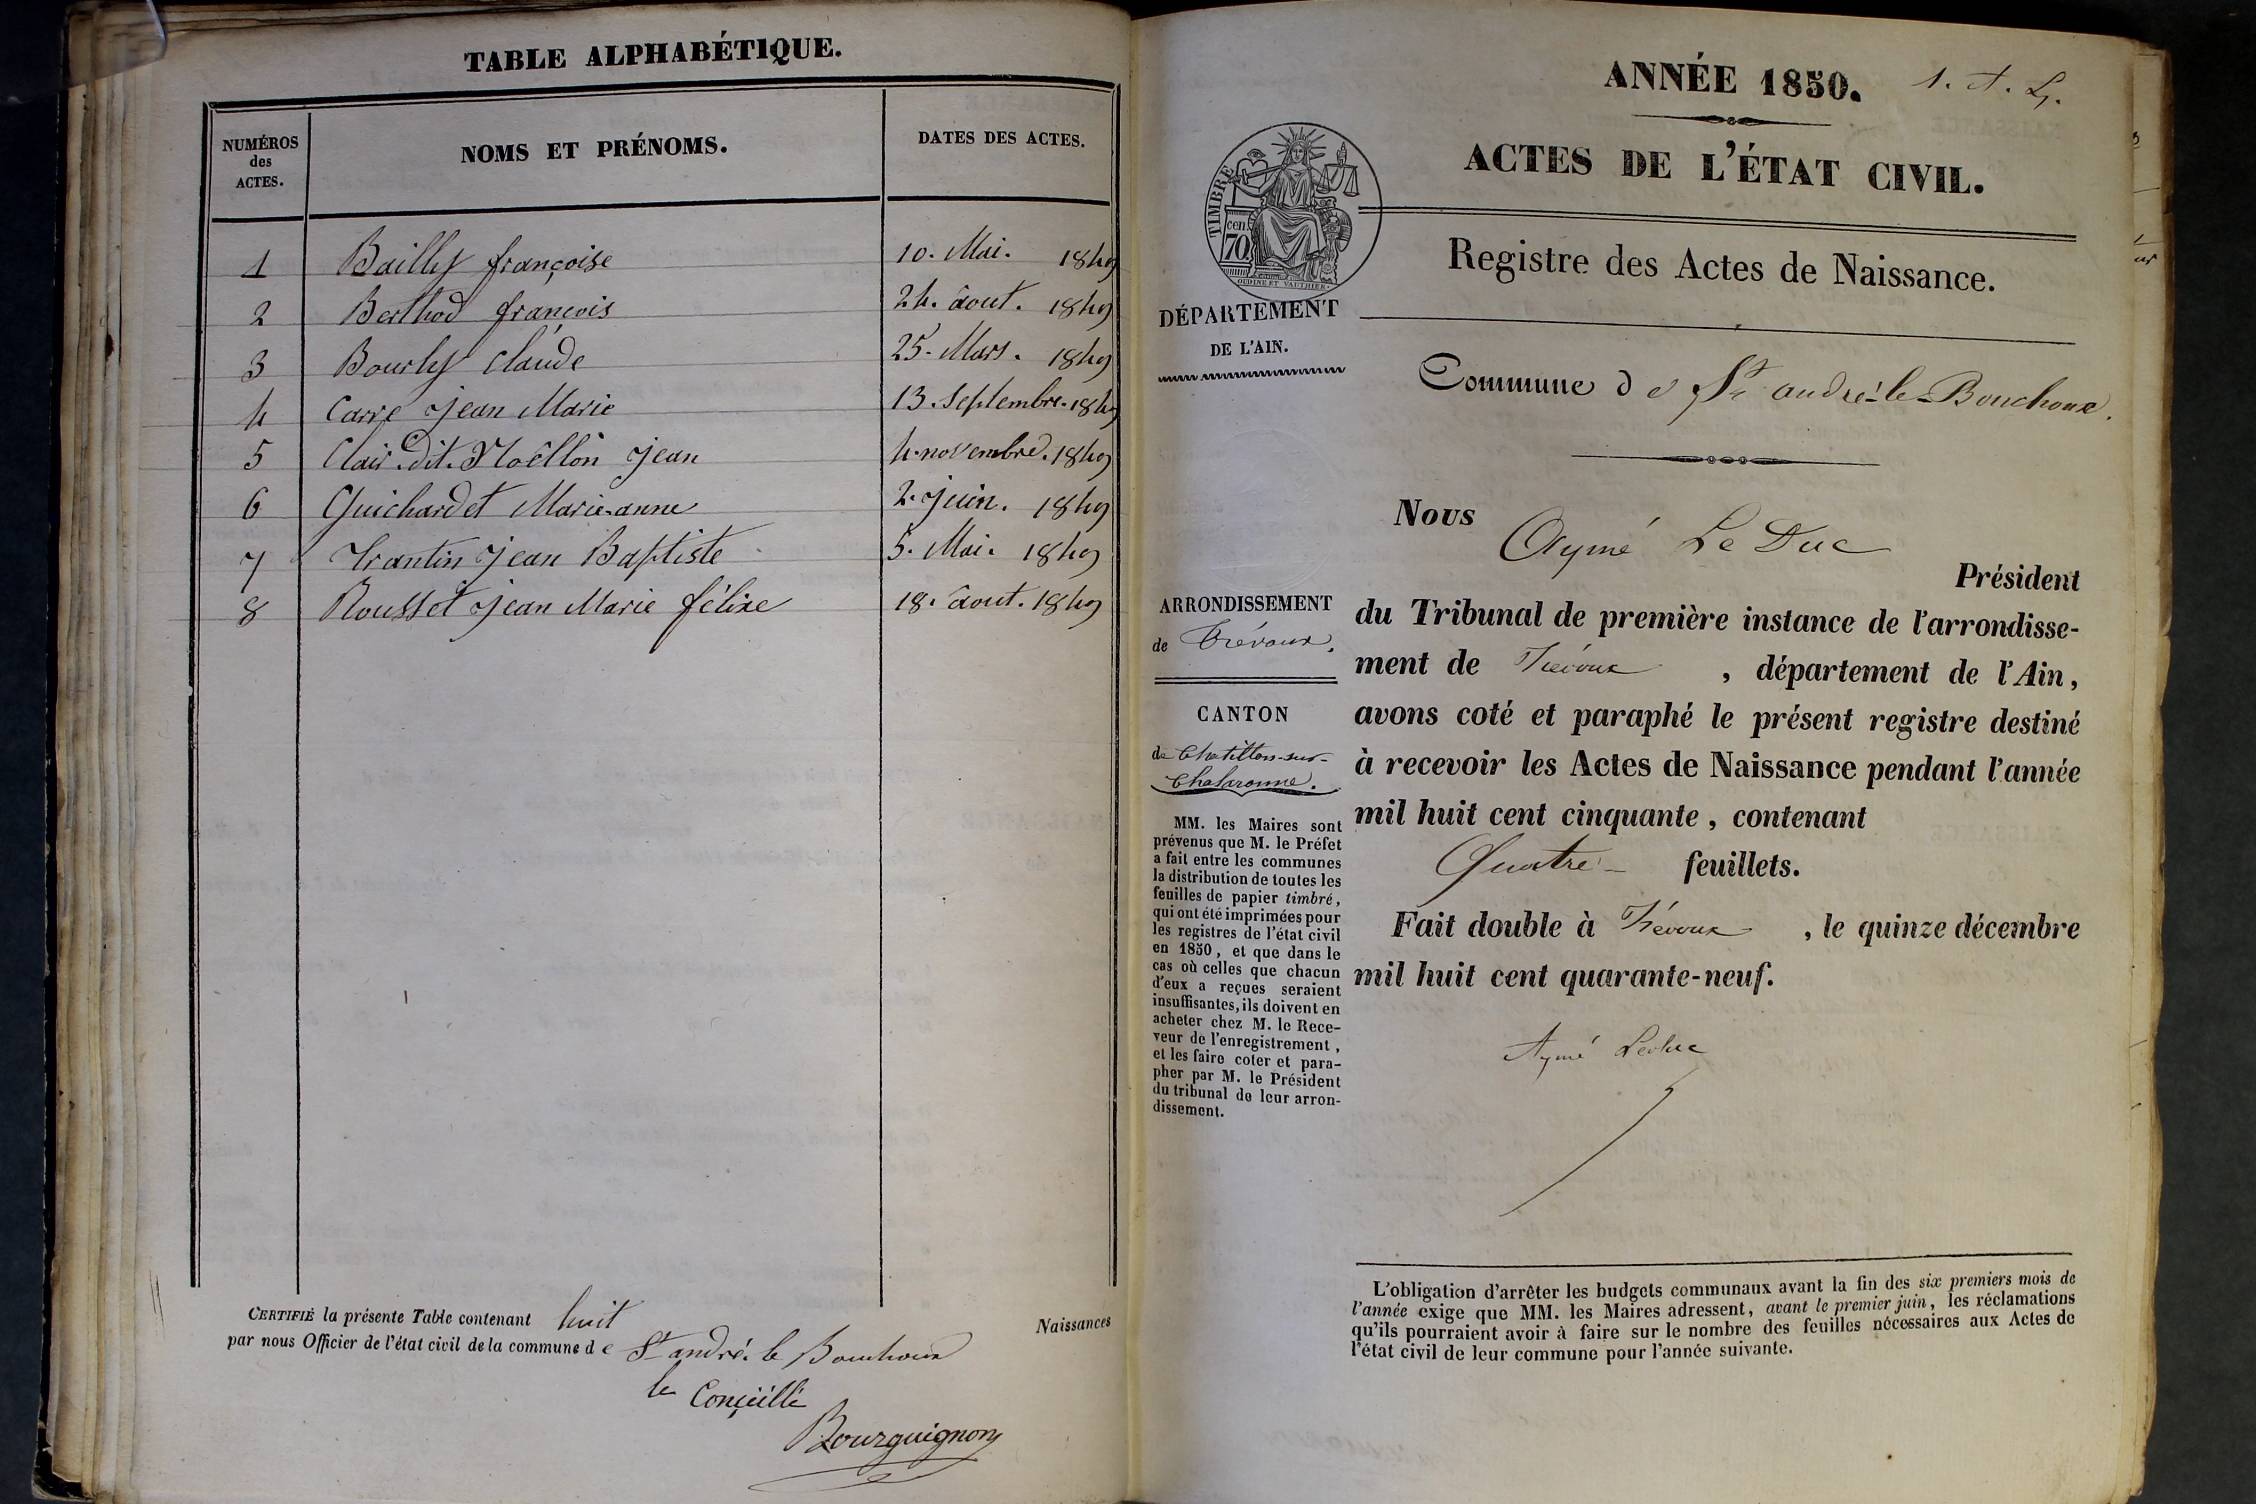 TABLE ALPHABÉTIQUE.
NUMÉROS des ACTES.
NOMS ET PRÉNOMS.
DATES DES ACTES.
1 Bailly françoise 10. Mai. 1849
2 Berthod françois 24. août. 1849
3 Bourly Claude 25. Mars. 1849
4 Carre Jean Marie 13. Septembre. 1849
5 Clair dit Noëllon Jean 4. novembre. 1849
6 Guichardet Marie-anne 2. juin. 1849
7 Trantin Jean Baptiste 5. Mai. 1849
8 Rousset Jean Marie félixe 18. août. 1849
CERTIFIÉ la présente Table contenant huit Naissances
par nous Officier de l'état civil de la commune de St andré. le Bouchoux
le Conçeillé
Bourguignon
ANNÉE 1850. 1. A. L.
ACTES DE L'ÉTAT CIVIL.
TIMBRE
cen.
70
OUDINE ET VAUTHIER
Registre des Actes de Naissance.
DÉPARTEMENT
DE L'AIN.
Commune de St andré-le-Bouchoux.
Nous Aymé Le Duc
Président
du Tribunal de première instance de l'arrondisse-
ment de Trévoux , département de l'Ain,
avons coté et paraphé le présent registre destiné
à recevoir les Actes de Naissance pendant l'année
mil huit cent cinquante, contenant
Quatre feuillets.
Fait double à Trévoux , le quinze décembre
mil huit cent quarante-neuf.
Aymé Leduc
ARRONDISSEMENT
de Trévoux.
CANTON
de Chatillon-sur-
Chalaronne.
MM. les Maires sont
prévenus que M. le Préfet
a fait entre les communes
la distribution de toutes les
feuilles de papier timbré,
qui ont été imprimées pour
les registres de l'état civil
en 1850, et que dans le
cas où celles que chacun
d'eux a reçues seraient
insuffisantes, ils doivent en
acheter chez M. le Rece-
veur de l'enregistrement,
et les faire coter et para-
pher par M. le Président
du tribunal de leur arron-
dissement.
L'obligation d'arrêter les budgets communaux avant la fin des six premiers mois de
l'année exige que MM. les Maires adressent, avant le premier juin, les réclamations
qu'ils pourraient avoir à faire sur le nombre des feuilles nécessaires aux Actes de
l'état civil de leur commune pour l'année suivante.